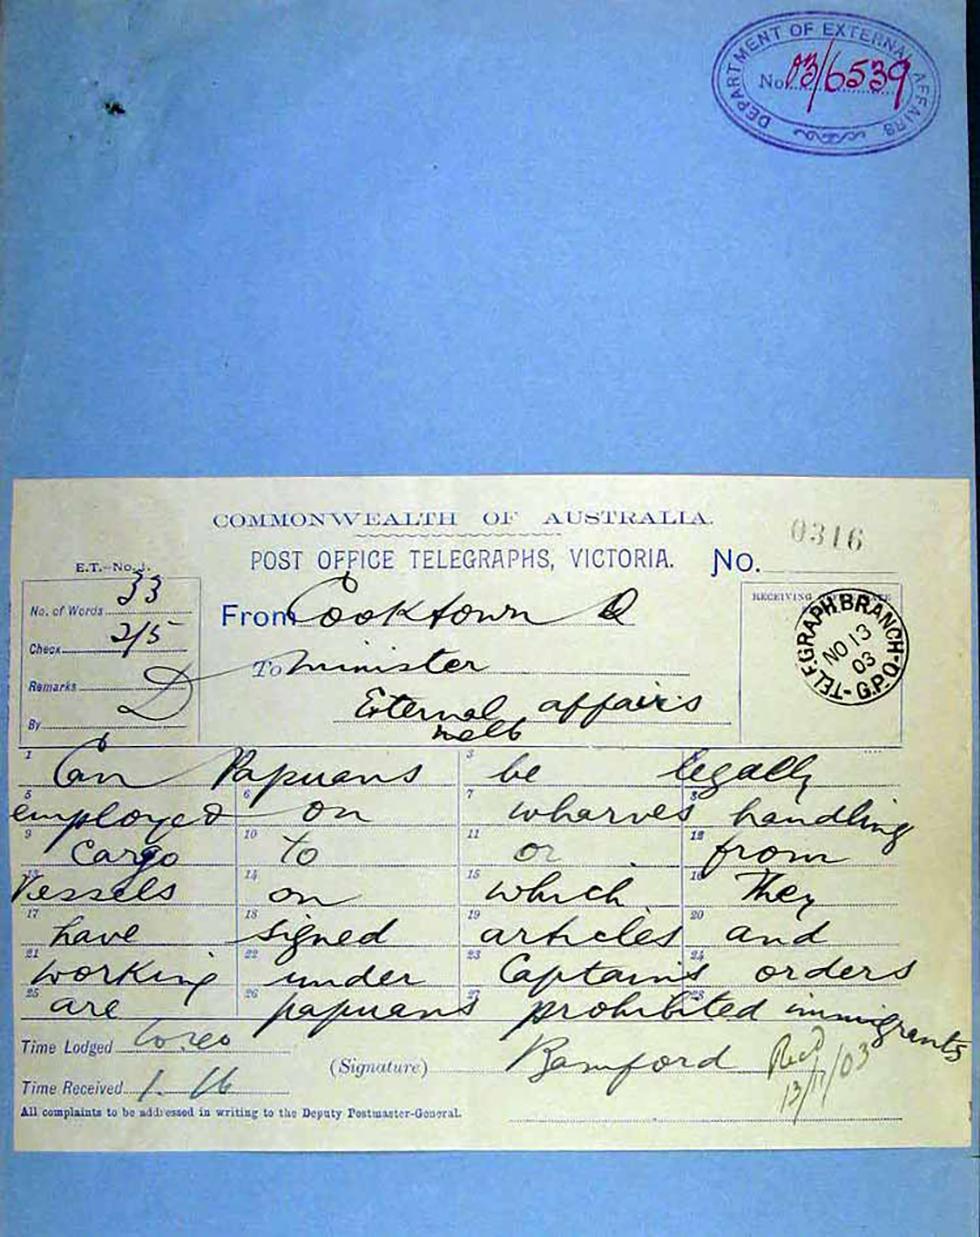 DEPARTMENT OF EXTERNAL AFFAIRS
No. 03/6539
COMMONWEALTH OF AUSTRALIA.
0316
POST OFFICE TELEGRAPHS, VICTORIA. No.
E.T.-No. 1.
No. of Words 33
Check 2/5
Remarks
By
From Cooktown Q
To Minister
External affairs
Melb
RECEIVING
TELEGRAPH BRANCH-G.P.O.
NO 13
03
1 Can 2 Papuans 3 be 4 legally
5 employed 6 on 7 wharves 8 handling
9 Cargo 10 to 11 or 12 from
13 Vessels 14 on 15 which 16 They
17 have 18 signed 19 articles 20 and
21 working 22 under 23 Captains 24 orders
25 are 26 papuans 27 prohibited 28 immigrants
Time Lodged
(Signature) Bamford
Recd
13/11/03
Time Received 1.16
All complaints to be addressed in writing to the Deputy Postmaster-General.